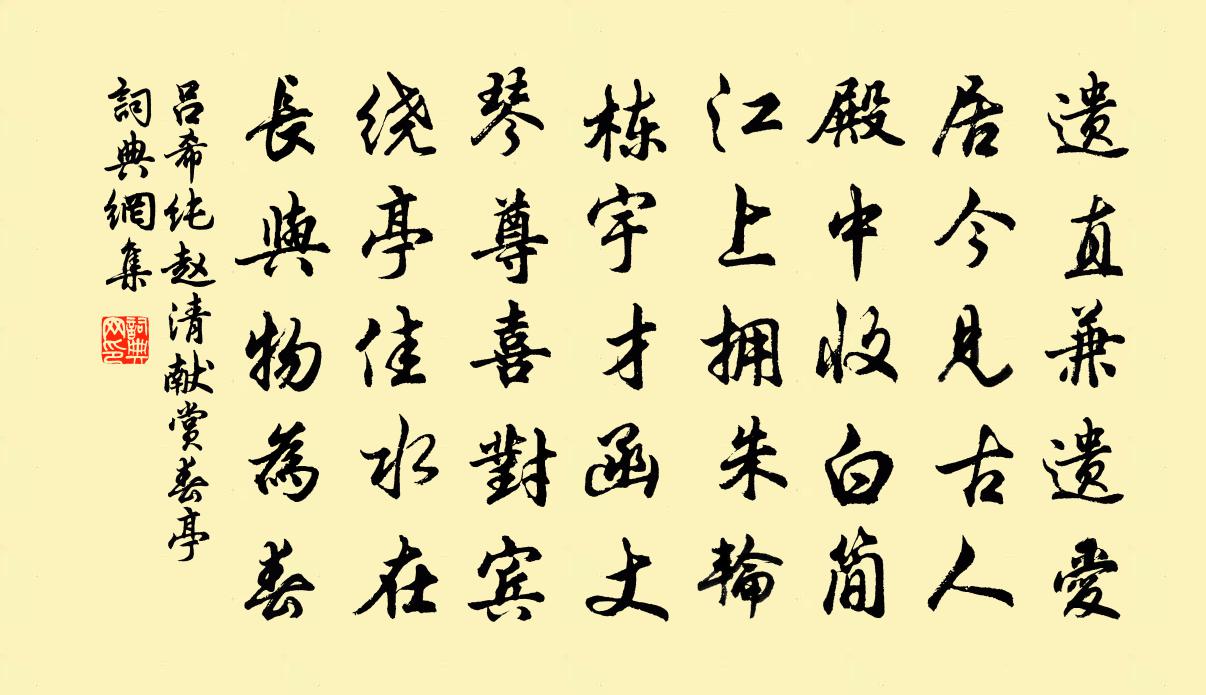 遗直兼遗爱
居今见古人
殿中收白简
江上拥朱輪
栋宇才函丈
琴尊喜對宾
绕亭佳水在
長與物為春
吕希纯赵清献赏春亭
詞典網集
詞典网印